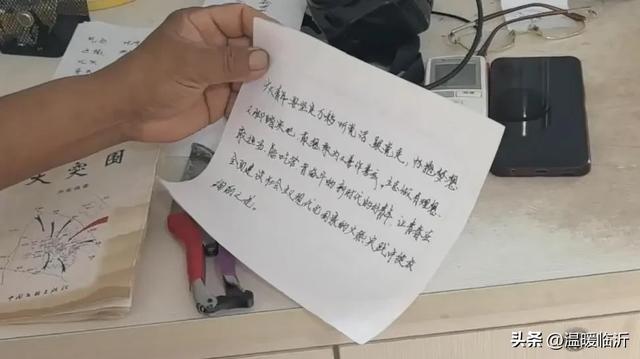 广大青年要坚定不移听党话、跟党走，怀抱梦想
又脚踏实地，敢想敢为又善作善成，立志做有理想、
敢担当、能吃苦、肯奋斗的新时代好青年，让青春在
全面建设社会主义现代化国家的火热实践中绽放
绚丽之花。
突围
中国文联出版社
头条 @温暖临沂